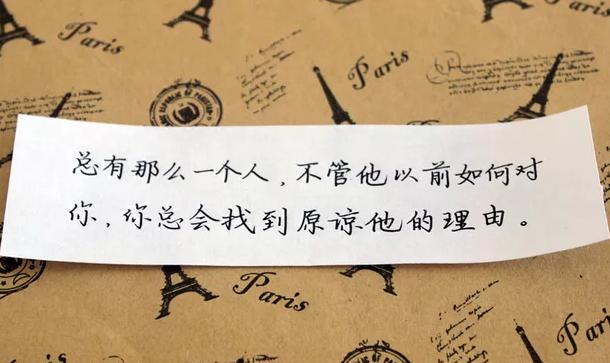 Paris
Paris
总有那么一个人，不管他以前如何对
你，你总会找到原谅他的理由。
Paris
Paris